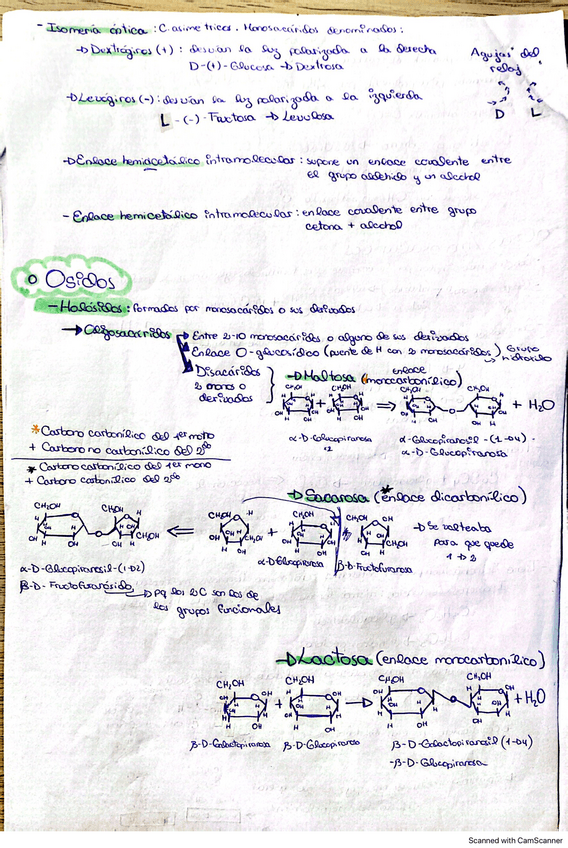 - Isomería óptica: C asimétricos. Monosacáridos denominados:
→ Dextrógiros (+): desvían la luz polarizada a la derecha
D-(+)-Glucosa → Dextrosa
Agujas del
reloj
D L
→ Levógiros (-): desvían la luz polarizada a la izquierda
L-(-)-Fructosa → Levulosa
→ Enlace hemiacetálico intramolecular: supone un enlace covalente entre
el grupo aldehído y un alcohol
- Enlace hemicetálico intramolecular: enlace covalente entre grupo
cetona + alcohol
o Osidos
- Holósidos: formados por monosacáridos o sus derivados
→ Oligosacáridos → Entre 2-10 monosacáridos o alguno de sus derivados
Enlace O-glucosídico (puente de H con 2 monosacáridos), Grupo
hidroxilo
Disacáridos
2 monos o
derivados
→ Maltosa (monocarbonílico)
enlace
CH2OH CH2OH CH2OH CH2OH
+ ⇒ + H2O
α-D-Glucopiranosa
·2
α-Glucopiranosil-(1→4)-
α-D-Glucopiranosa
* Carbono carbonílico del 1er mono
+ Carbono no carbonílico del 2do
* Carbono carbonílico del 1er mono
+ Carbono carbonílico del 2do
→ Sacarosa (*enlace dicarbonílico)
CH2OH CH2OH CH2OH CH2OH
→ Se voltea
para que quede
1→2
α-D-Glucopiranosil-(1→2)
β-D-Fructofuranósido
→ pq los 2C son los de
los grupos funcionales
α-D-Glucopiranosa
β-D-Fructofuranosa
→ Lactosa (enlace monocarbonílico)
CH2OH CH2OH CH2OH CH2OH
+ → + H2O
β-D-Galactopiranosa β-D-Glucopiranosa β-D-Galactopiranosil (1→4)
-β-D-Glucopiranosa
Scanned with CamScanner